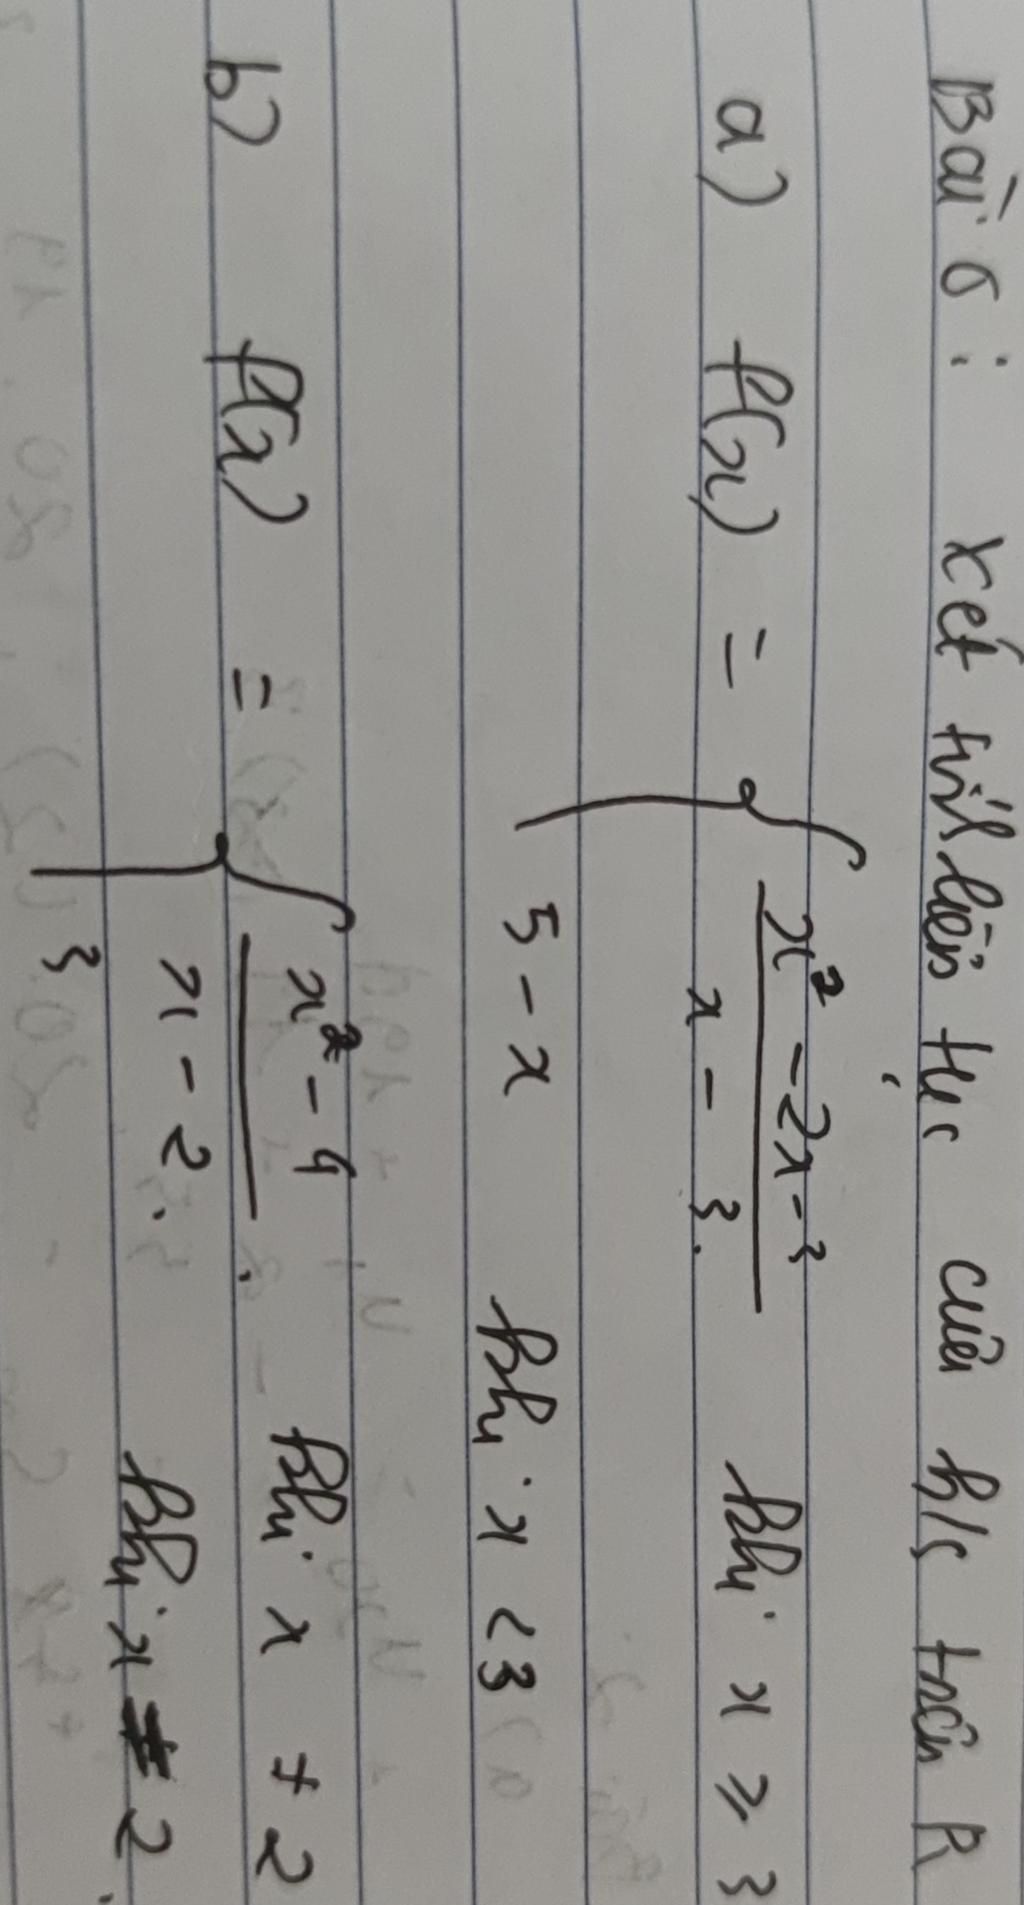 Bài 6: xét tính liên tục của h/s trên R
a) f(x) = { x² - 2x - 3 / x - 3. khi x ≥ 3
5 - x khi x < 3
b) f(x) = { x² - 4 / x - 2. khi x ≠ 2
3 khi x = 2